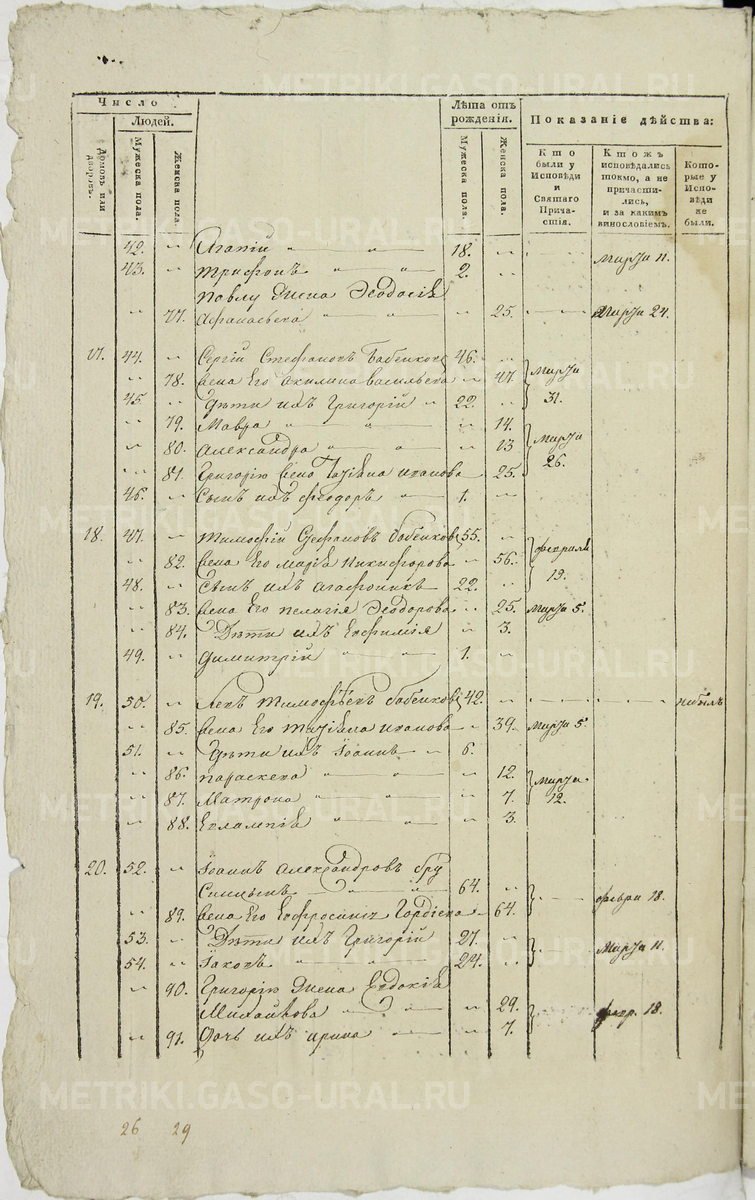 METRIKI.GASO-URAL.RU
Число
Людей.
Домовъ или дворовъ.
Мужеска пола.
Женска пола.
Лѣта отъ рожденія.
Мужеска пола.
Женска пола.
Показаніе дѣйства:
Кто были у Исповѣди и Святаго Прича-стія.
Ктожъ исповѣдались токмо, а не причасти-лись, и за какимъ винословіемъ.
Кото-рые у Испо-вѣди не были.
42. " Агапій " " 18. " Марта 11.
43. " Трифонъ " " 2. "
Павлу Жена Ѳеодосія
" 77. Афанасьева " " 25. Марта 24.
17. 44. " Сергій Стефановъ Бабенковъ 46. "
" 78. Жена Его Акилина Васильева " 47. Марта 31.
45. " Дѣти ихъ Григорій " 22. "
" 79. Мавра " " 14.
" 80. Александра " " 13 Марта 26.
" 81. Григорію Жена Татіана Иванова 25.
46. " Сынъ ихъ Феодоръ " 1. "
18. 47. " Тимофій Стефановъ Бабенковъ 55. "
" 82. Жена Его Марія Никифорова " 56. февраля 19.
48. " Сынъ ихъ Агафоникъ 22. "
" 83. Жена Его Пелагія Ѳеодорова " 25. Марта 5.
" 84. Дѣти ихъ Евфимія " 3.
49. " Димитрій " " 1. "
19. 50. " Левъ Тимофѣевъ Бабенковъ 42. " небылъ
" 85. Жена Его Татіана Иванова " 39. Марта 5.
51. " Дѣти ихъ Іоаннъ " 6.
" 86. Параскева " " 12.
" 87. Матрона " " 7. Марта 12.
" 88. Евлампія " " 3.
20. 52. " Іоаннъ Александровъ Бру
Сницынъ " 64. "
" 89. Жена Его Евфросинія Гордѣева 64. феврал 18.
53. " Дѣти ихъ Григорій 27. "
54. " Іаковъ " " 24. " Марта 11.
" 90. Григорію Жена Евдокія
Михайлова " " 29.
" 91. Дочь ихъ Ирина " 7. февр. 18.
METRIKI.GASO-URAL.RU
26 29